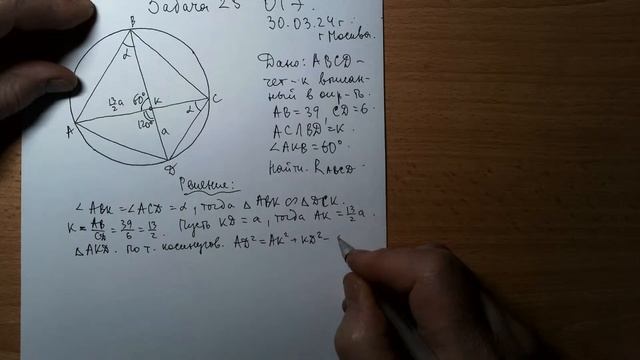 Задача 25 ОГЭ.
30.03.24 г.
г. Москва.
Дано: ABCD –
чет-к вписан-
ный в окр-ть.
AB = 39, CD = 6.
AC ∩ BD = K.
∠AKB = 60°
Найти: R_ABCD.
B
α
13/2 a
60°
K
C
α
120°
A
a
D
Решение:
∠ABK = ∠ACD = α, тогда △ABK ∾ △DCK.
K = AB/CD = 39/6 = 13/2. Пусть KD = a, тогда AK = 13/2 a.
△AKD. По т. косинусов. AD² = AK² + KD² –